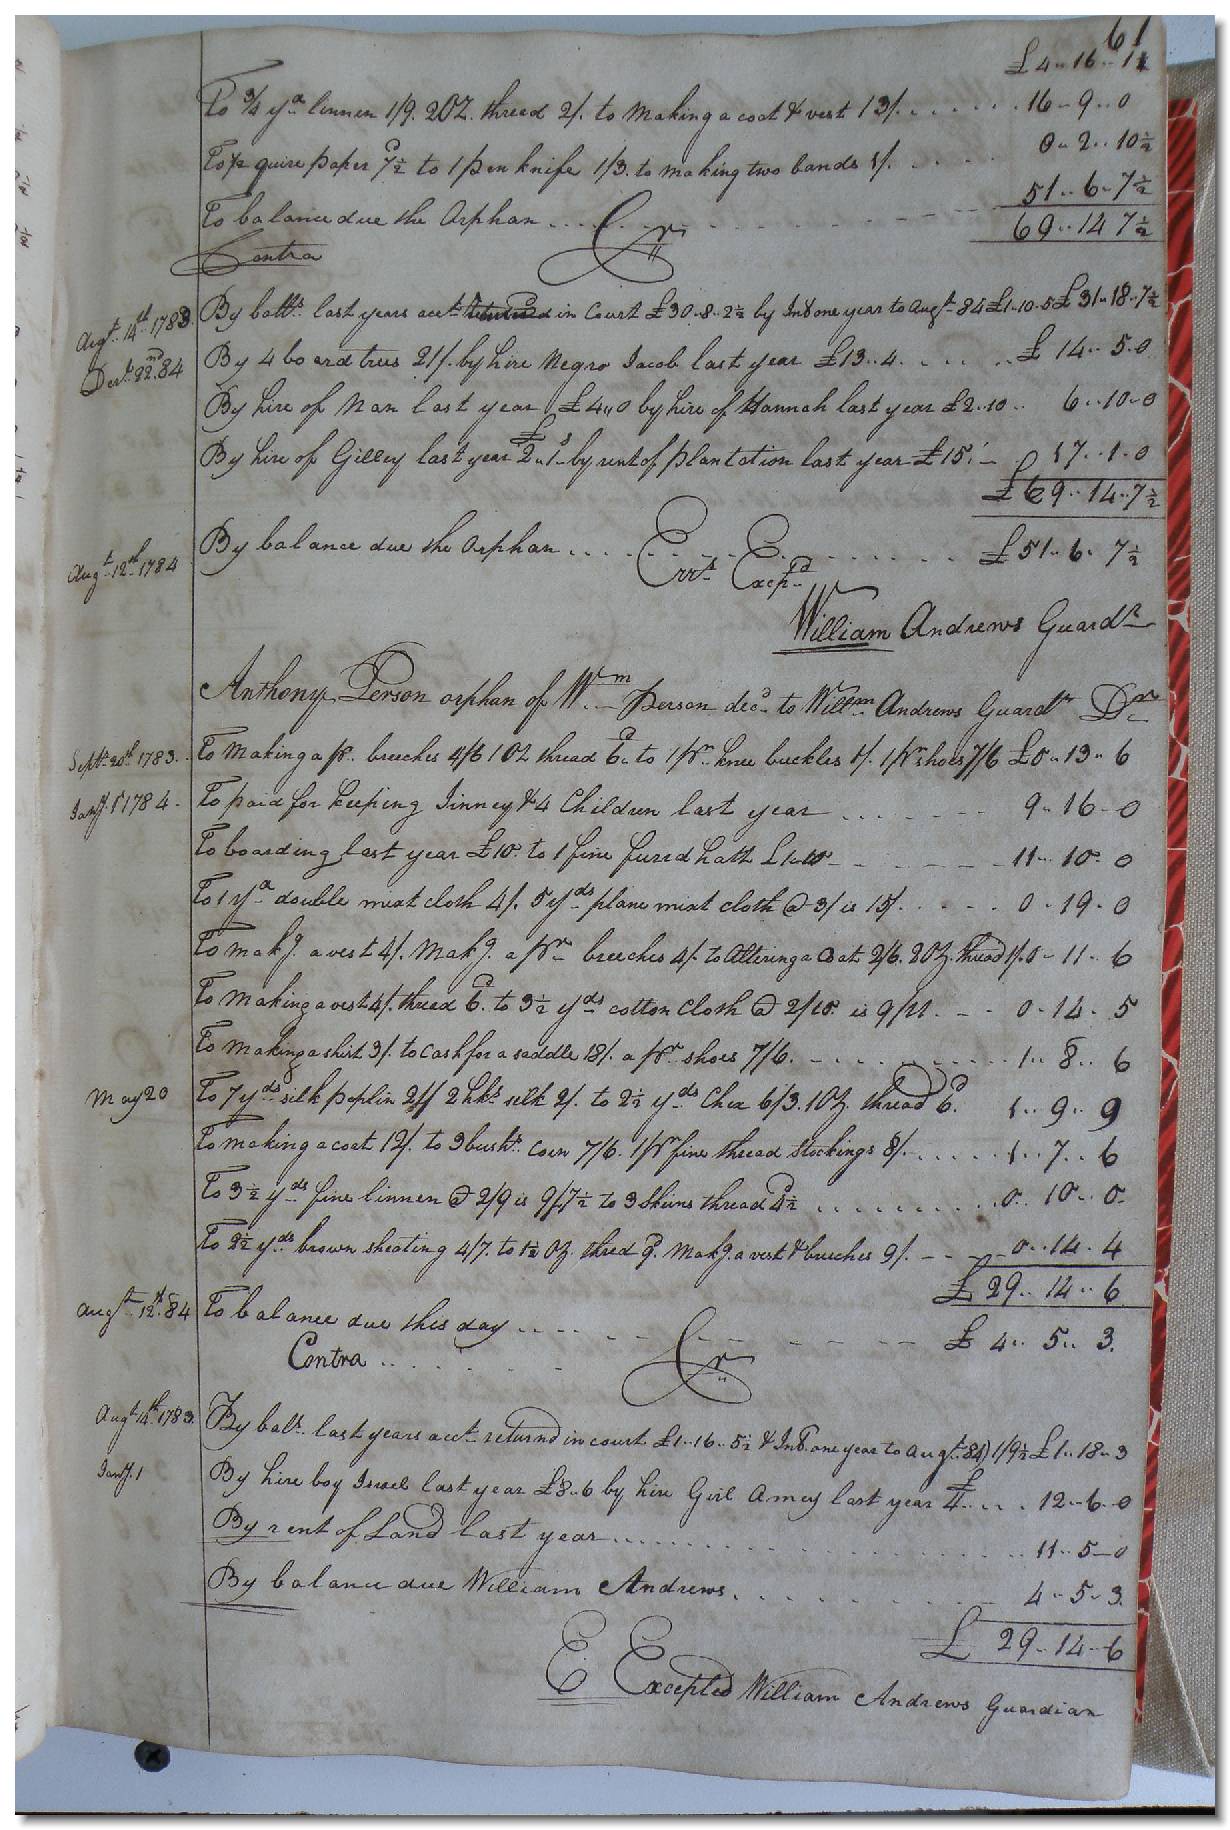 61
£4..16..1½
To ¾ yd linnen 1/9. 2 oz. thread 2/. to making a coat & vest 13/. . . . . . 16..9..0
To ½ quire paper 7½d to 1 pen knife 1/3. to making two bands 1/. . . . . 0..2..10½
To balance due the Orphan . . . . 51..6..7½
69..14 7½
Contra Cr
Augt. 14th 1783. By balle. last years acct. returned in Court £30..8..2½ by Int. one year to Augt. 84 £1..10..5 £31..18..7½
Decr. 22nd 84 By 4 board trees 21/. by hire Negro Jacob last year £13..4. . . . . £14..5..0
By hire of Nan last year £4..0 by hire of Hannah last year £2..10.. 6..10..0
By hire of Gilley last year £2..1s by rent of plantation last year £15.. 17..1..0
£69..14..7½
Augt. 12th 1784 By balance due the Orphan . . . . £51..6..7½
Errs. Excepd.
William Andrews Guardn
Anthony Person orphan of Wm. Person decd. to Willm. Andrews Guardn Dr
Septr. 20th 1783. To making a pr. breeches 4/6 1 oz thread 6d. to 1 pr. knee buckles 1/. 1 pr shoes 7/6 £0..13..6
Jany. 1 1784. To paid for keeping Jinney & 4 Children last year . . . . 9..16..0
To boarding last year £10. to 1 fine furred hatt £1..10 11..10..0
To 1 yd. double mixt cloth 4/. 5 yds plane mixt cloth @ 3/ is 15/. . . . . 0..19..0
To makg. a vest 4/. Makg. a pr. breeches 4/. to Altering a Coat 2/6. 2 oz. thread 1/. 0..11..6
To making a vest 4/. thread 6d. to 3½ yds cotton cloth @ 2/10. is 9/11. 0..14..5
To making a shirt 3/. to cash for a saddle 18/. a pr shoes 7/6. 1..8..6
May 20 To 7 yds silk poplin 21/ 2 hks silk 2/. to 2½ yds Chex 6/3. 1 oz. thread 6d. 1..9..9
To making a coat 12/. to 3 bushs. corn 7/6. 1 pr fine thread stockings 8/. . . . . 1..7..6
To 3½ yds fine linnen @ 2/9 is 9/7½ to 3 Skins thread 4½d . . . . 0..10..0
To 2½ yds brown sheating 4/7. to 1½ oz. thred 9d. Makg. a vest & breeches 9/. 0..14..4
£29..14..6
Augt. 12th 84 To balance due this day . . . . £4..5..3.
Contra . . . . Cr
Augt. 14th 1783. By bale. last years acct. returnd in court £1..16..5½ & Int. one year to Augt. 84) 1/9½ £1..18..3
Jany. 1 By hire boy Isreel last year £8..6 by hire Girl Amey last year £4. . . . 12..6..0
By rent of Land last year . . . . 11..5..0
By balance due William Andrews. . . . . 4..5..3.
£29..14..6
E. Excepted William Andrews Guardian